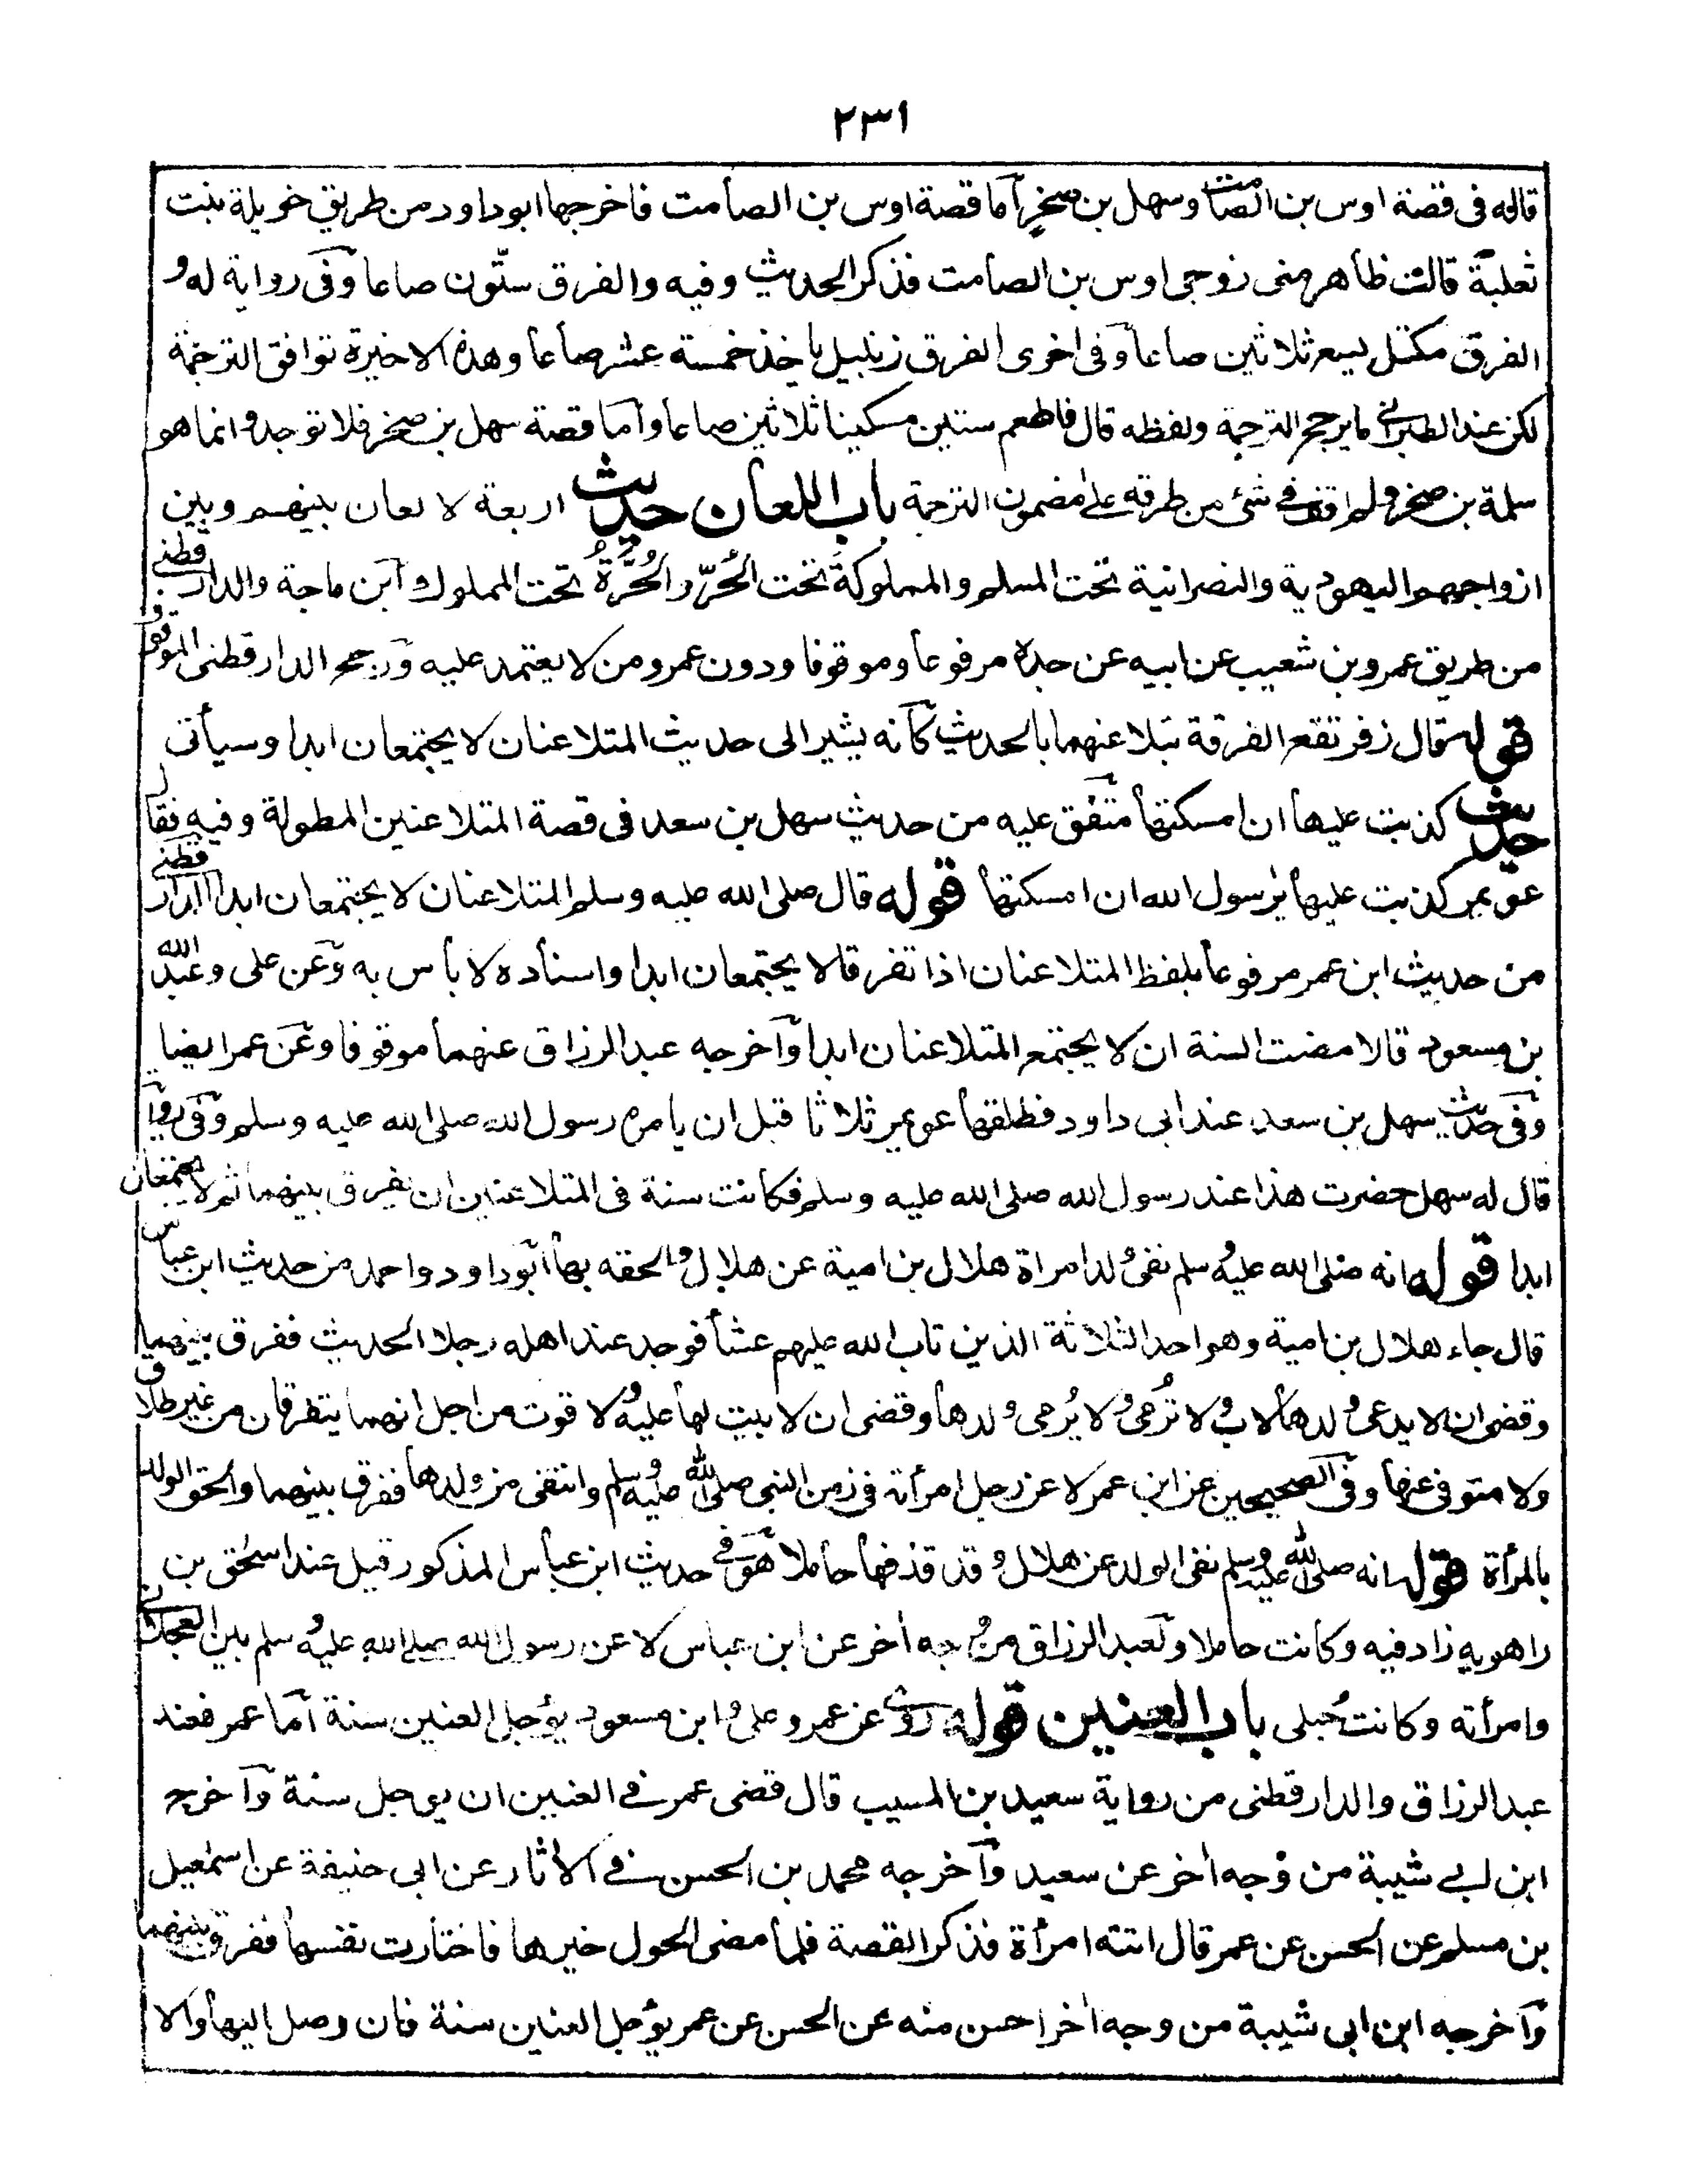 ٢٣١
قاله في قصة اوس بن الصامت وسهل بن صخر أما قصة اوس بن الصامت فاخرجها ابو داود من طريق خويلة بنت
ثعلبة قالت ظاهر مني زوجي اوس بن الصامت فذكر الحديث وفيه والفرق ستون صاعا وفي رواية له و
الفرق مكتل يسع ثلاثين صاعا وفي اخرى الفرق زنبيل ياخذ خمسة عشر صاعا وهذه الاخيرة توافق الترجمة
لكن عند الطبراني ما يرجح الترجمة ولفظه قال فاطعم ستين مسكينا ثلاثين صاعا وأما قصة سهل بن صخر فلا توجد وانما هو
سلمة بن صخر ولم اقف في شئ من طرقه على مضمون الترجمة باب اللعان حديث اربعة لا لعان بينهم وبين
ازواجهم اليهودية والنصرانية تحت المسلم والمملوكة تحت الحر والحرة تحت المملوك ابن ماجة والدارقطني
من طريق عمرو بن شعيب عن ابيه عن جده مرفوعا وموقوفا ودون عمرو من لا يعتمد عليه ورجح الدارقطني الموقوف
قوله وقال زفر تقع الفرقة بتلاعنهما بالحديث كأنه يشير الى حديث المتلاعنان لا يجتمعان ابدا وسيأتي
حديث كذبت عليها ان امسكتها متفق عليه من حديث سهل بن سعد في قصة المتلاعنين المطولة وفيه فقال
عويمر كذبت عليها يرسول الله ان امسكتها قوله قال صلى الله عليه وسلم المتلاعنان لا يجتمعان ابدا الدارقطني
من حديث ابن عمر مرفوعا بلفظ المتلاعنان اذا تفرقا لا يجتمعان ابدا واسناده لا بأس به وعن على وعبد الله
بن مسعود قالا مضت السنة ان لا يجتمع المتلاعنان ابدا وأخرجه عبد الرزاق عنهما موقوفا وعن عمر ايضا
وفي حديث سهل بن سعد عند ابي داود فطلقها عويمر ثلاثا قبل ان يامره رسول الله صلى الله عليه وسلم وفي رواية
قال له سهل حضرت هذا عند رسول الله صلى الله عليه وسلم فكانت سنة في المتلاعنين ان يفرق بينهما ثم لا يجتمعان
ابدا قوله انه صلى الله عليه وسلم نفى ولد امراة هلال بن امية عن هلال والحقه بها ابو داود واحمد من حديث ابن عباس
قال جاء هلال بن امية وهو احد الثلاثة الذين تاب الله عليهم عشأ فوجد عند اهله رجلا الحديث ففرق بينهما
وقضى ان لا يدعى ولدها لاب ولا تُرمى ولا يُرمى ولدها وقضى ان لا بيت لها عليه ولا قوت من اجل انهما يتفرقان من غير طلاق
ولا متوفى عنها وفي الصحيحين عن ابن عمر لاعن رجل امرأته في زمن النبي صلى الله عليه وسلم وانتفى من ولدها ففرق بينهما والحق الولد
بالمرأة قوله انه صلى الله عليه وسلم نفى الولد عن هلال وقد قذفها حاملا هو في حديث ابن عباس المذكور قبل عند اسحق بن
راهويه زاد فيه وكانت حاملا ولعبد الرزاق من وجه أخر عن ابن عباس لاعن رسول الله صلى الله عليه وسلم بين العجلاني
وامرأته وكانت حُبلى باب العنين قوله روى عن عمر وعلى وابن مسعود يؤجل العنين سنة أما عمر فعند
عبد الرزاق والدارقطني من رواية سعيد بن المسيب قال قضى عمر في العنين ان يوجل سنة وأخرج
ابن ابي شيبة من وجه أخر عن سعيد وأخرجه محمد بن الحسن في الأثار عن ابي حنيفة عن اسمعيل
بن مسلم عن الحسن عن عمر قال اتته امرأة فذكر القصة فلما مضى الحول خيرها فاختارت نفسها ففرق بينهما
وأخرجه ابن ابي شيبة من وجه أخر احسن منه عن الحسن عن عمر يؤجل العنين سنة فان وصل اليها والا